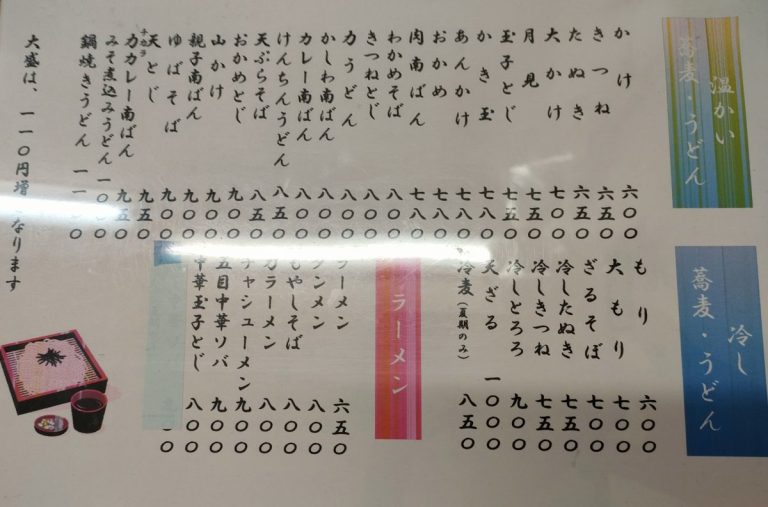 温かい
蕎麦・うどん
かけ 六〇〇
きつね 六五〇
たぬき 六五〇
大かけ 七〇〇
月見 七五〇
玉子とじ 七五〇
かき玉 七八〇
あんかけ 七八〇
おかめ 七八〇
肉南ばん 七八〇
わかめそば 八〇〇
きつねとじ 八〇〇
力うどん 八〇〇
かしわ南ばん 八〇〇
カレー南ばん 八〇〇
けんちんうどん 八五〇
天ぷらそば 八五〇
おかめとじ 九〇〇
山かけ 九〇〇
親子南ばん 九〇〇
ゆばそば 九〇〇
天とじ 九五〇
力カレー南ばん 九五〇
みそ煮込みうどん
鍋焼きうどん
大盛は、一一〇円増となります
冷し
蕎麦・うどん
もり 六〇〇
大もり 七〇〇
ざるそば 七〇〇
冷したぬき 七五〇
冷しきつね 七五〇
冷しとろろ 九〇〇
天ざる 一〇〇〇
冷麦(夏期のみ) 八五〇
ラーメン
ラーメン 六五〇
タンメン 八〇〇
もやしそば 八〇〇
力ラーメン 八〇〇
チャシューメン 九〇〇
五目中華ソバ 九〇〇
中華玉子とじ 八〇〇